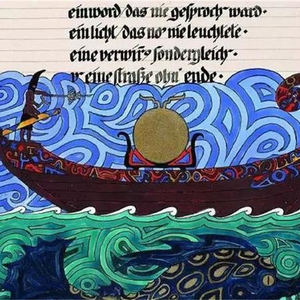 ein word/das nie gesproch ward·
ein licht/das no' nie leuchtete·
eine verwir' sondergleich'·
u' eine straße ohn' ende·